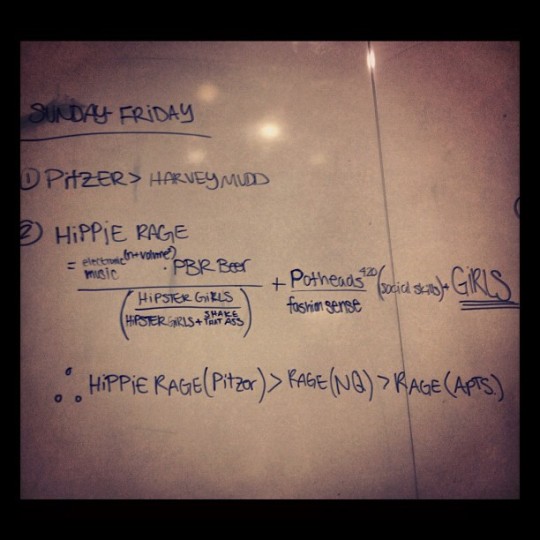 SUNDAY FRIDAY
① PiTZER > HARVEY MUDD
② HiPPiE RAGE
= electronic music (n+volume²) · PBR Beer
(HiPSTER GiRLS / HiPSTER GiRLS + SHAKE THAT ASS)
+ Potheads⁴²⁰ / fashion sense (social skills) + GiRLS
∴ HiPPiE RAGE (Pitzer) > RAGE (NQ) > RAGE (APTS.)